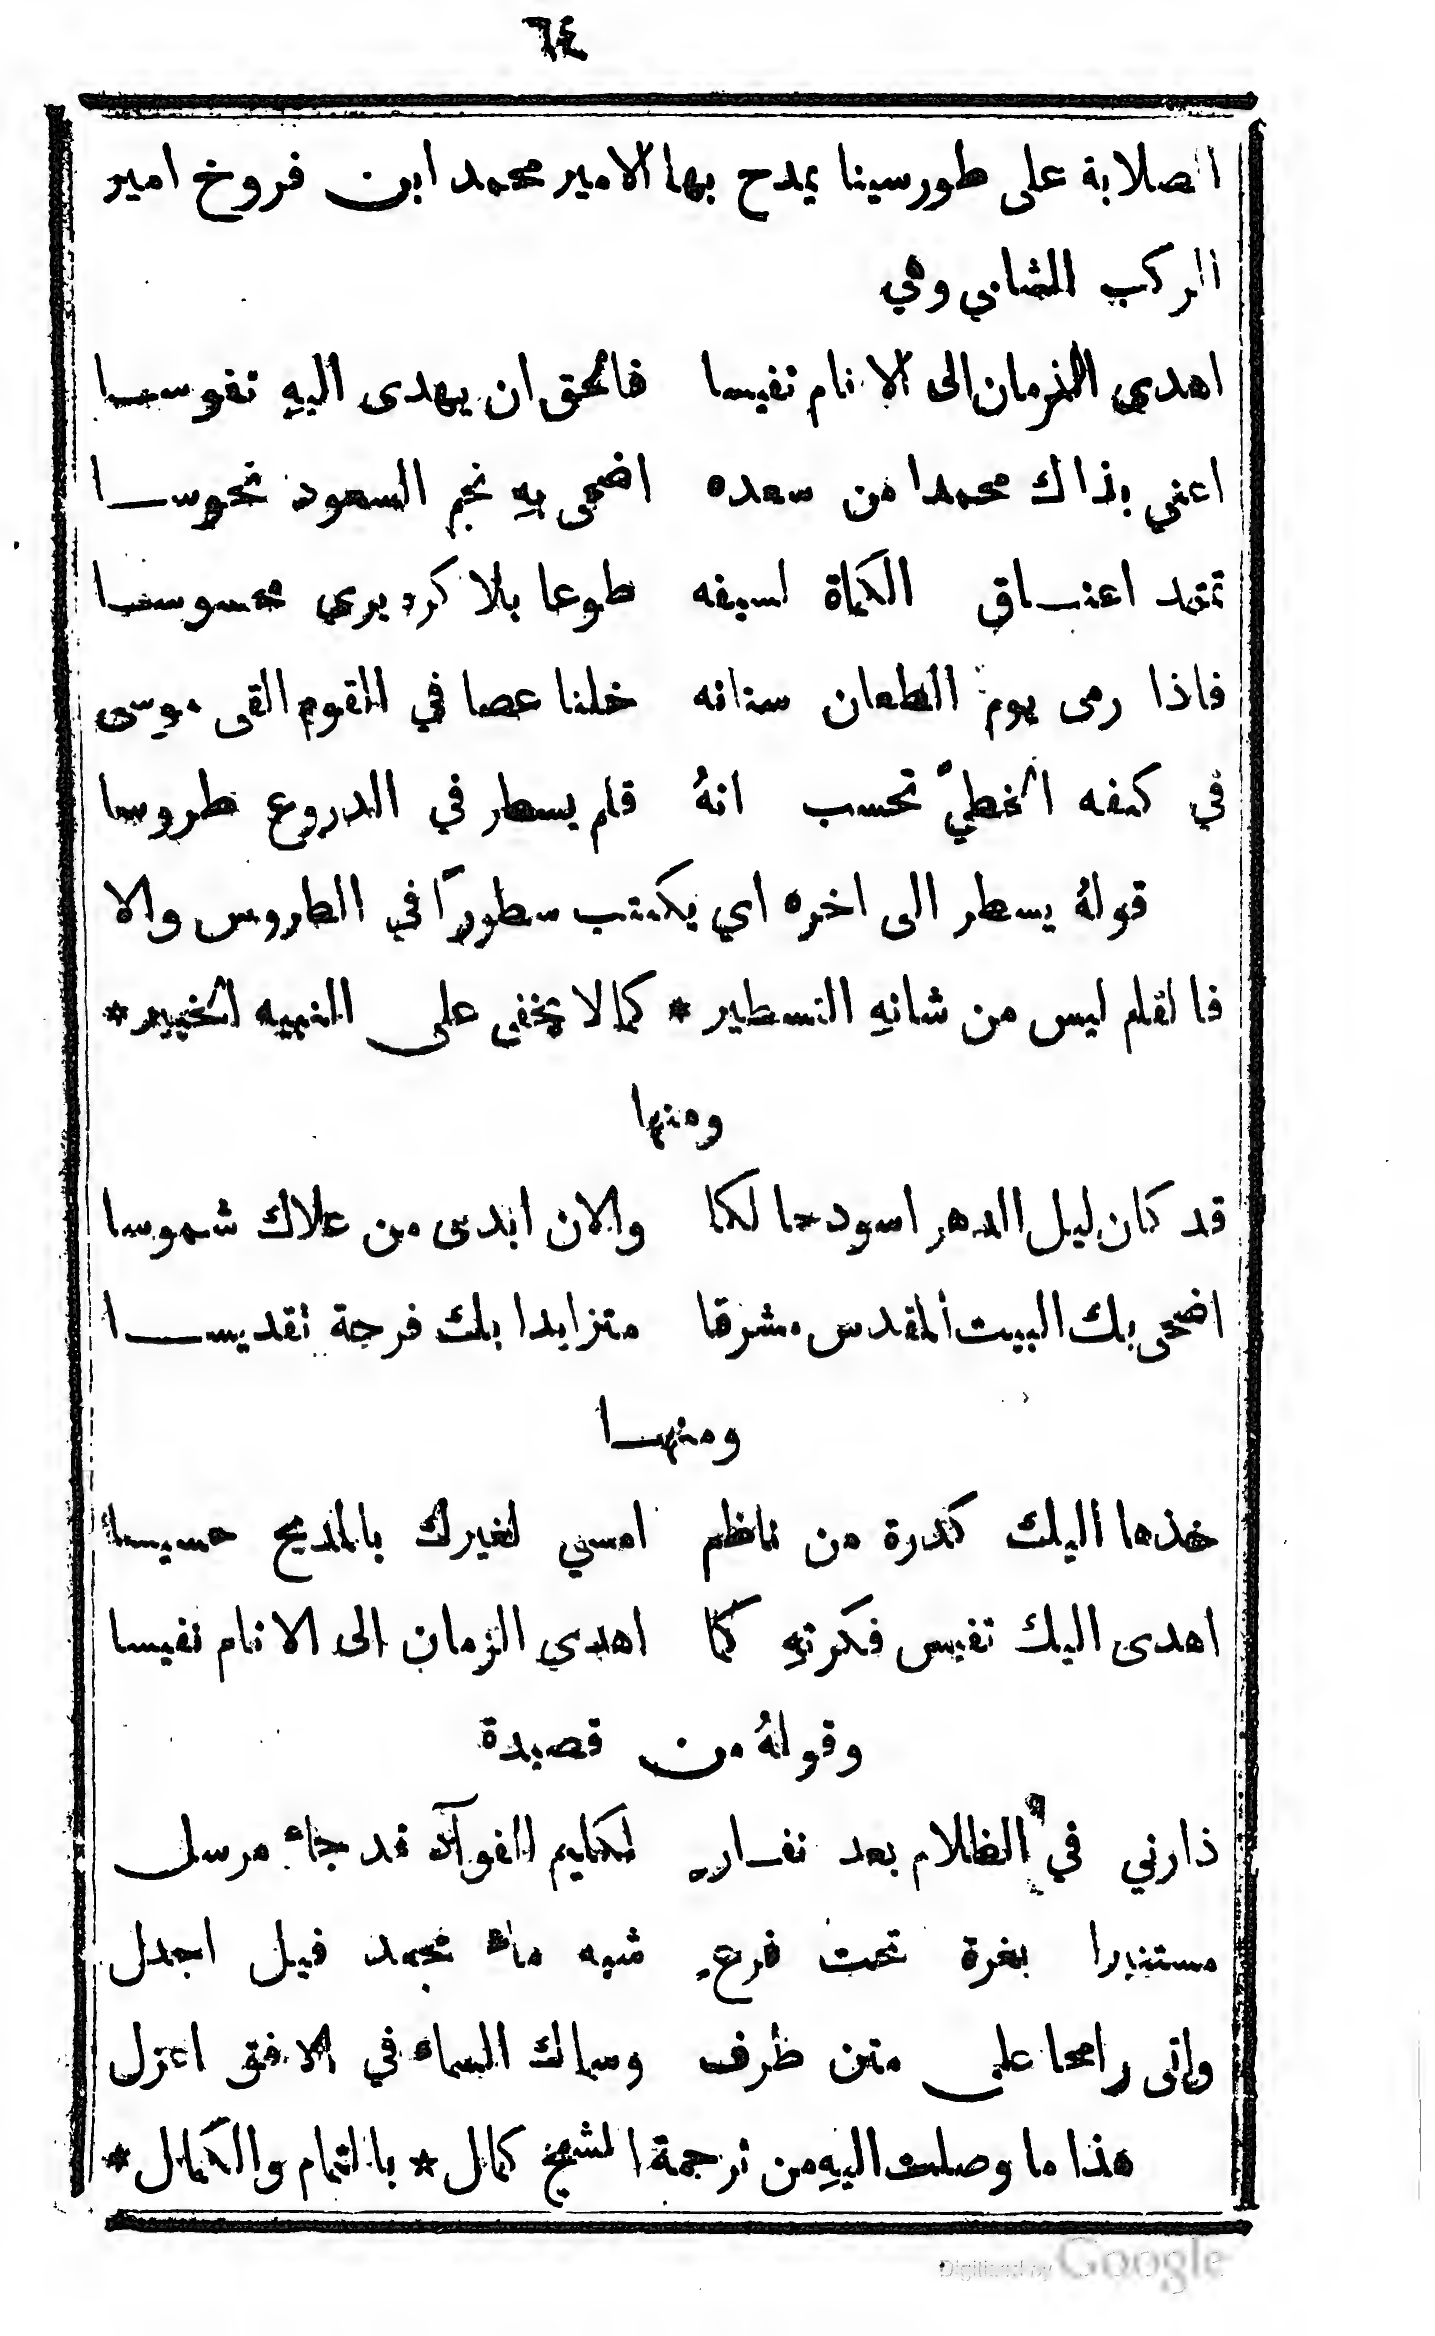 ٦٤
الصلابة على طورسينا يمدح بها الامير محمد ابن فروخ امير
الركب الشامي وهي
اهدى الزمان الى الانام نفيسا فالحق ان يهدى اليهِ نفوسا
اعني بذاك محمدا من سعده اضحى بهِ نجم السعود نحوسا
تنقد اعناق الكماة لسيفه طوعا بلا كره يرى محسوسا
فاذا رمى يوم الطعان سنانه خلنا عصا في القوم القى موسى
في كفه الخطيّ تحسب انهُ قلم يسطر في الدروع طروسا
قولهُ يسطر الى اخره اي يكتب سطورًا في الطروس والا
فالقلم ليس من شانهِ التسطير * كما لا يخفى على النبيه الخبير *
ومنها
قد كان ليل الدهر اسود حالكا والان ابدى من علاك شموسا
اضحى بك البيت المقدس مشرقا متزايدا بك فرحة تقديسا
ومنها
خذها اليك كدرة من ناظم امسى لغيرك بالمديح حسيسا
اهدى اليك نفيس فكرتهِ كما اهدى الزمان الى الانام نفيسا
وقولهُ من قصيدة
ذارني في الظلام بعد نفارٍ لكليم الفوآد قد جاء مرسل
مستنيرا بغرة تحت فرعٍ شبه ماء تجمد فيل اجدل
واتى رامحا على متن طرف وسماك السماء في الافق اعزل
هذا ما وصلت اليهِ من ترجمة الشيخ كمال * بالتمام والكمال *
Digitized by Google